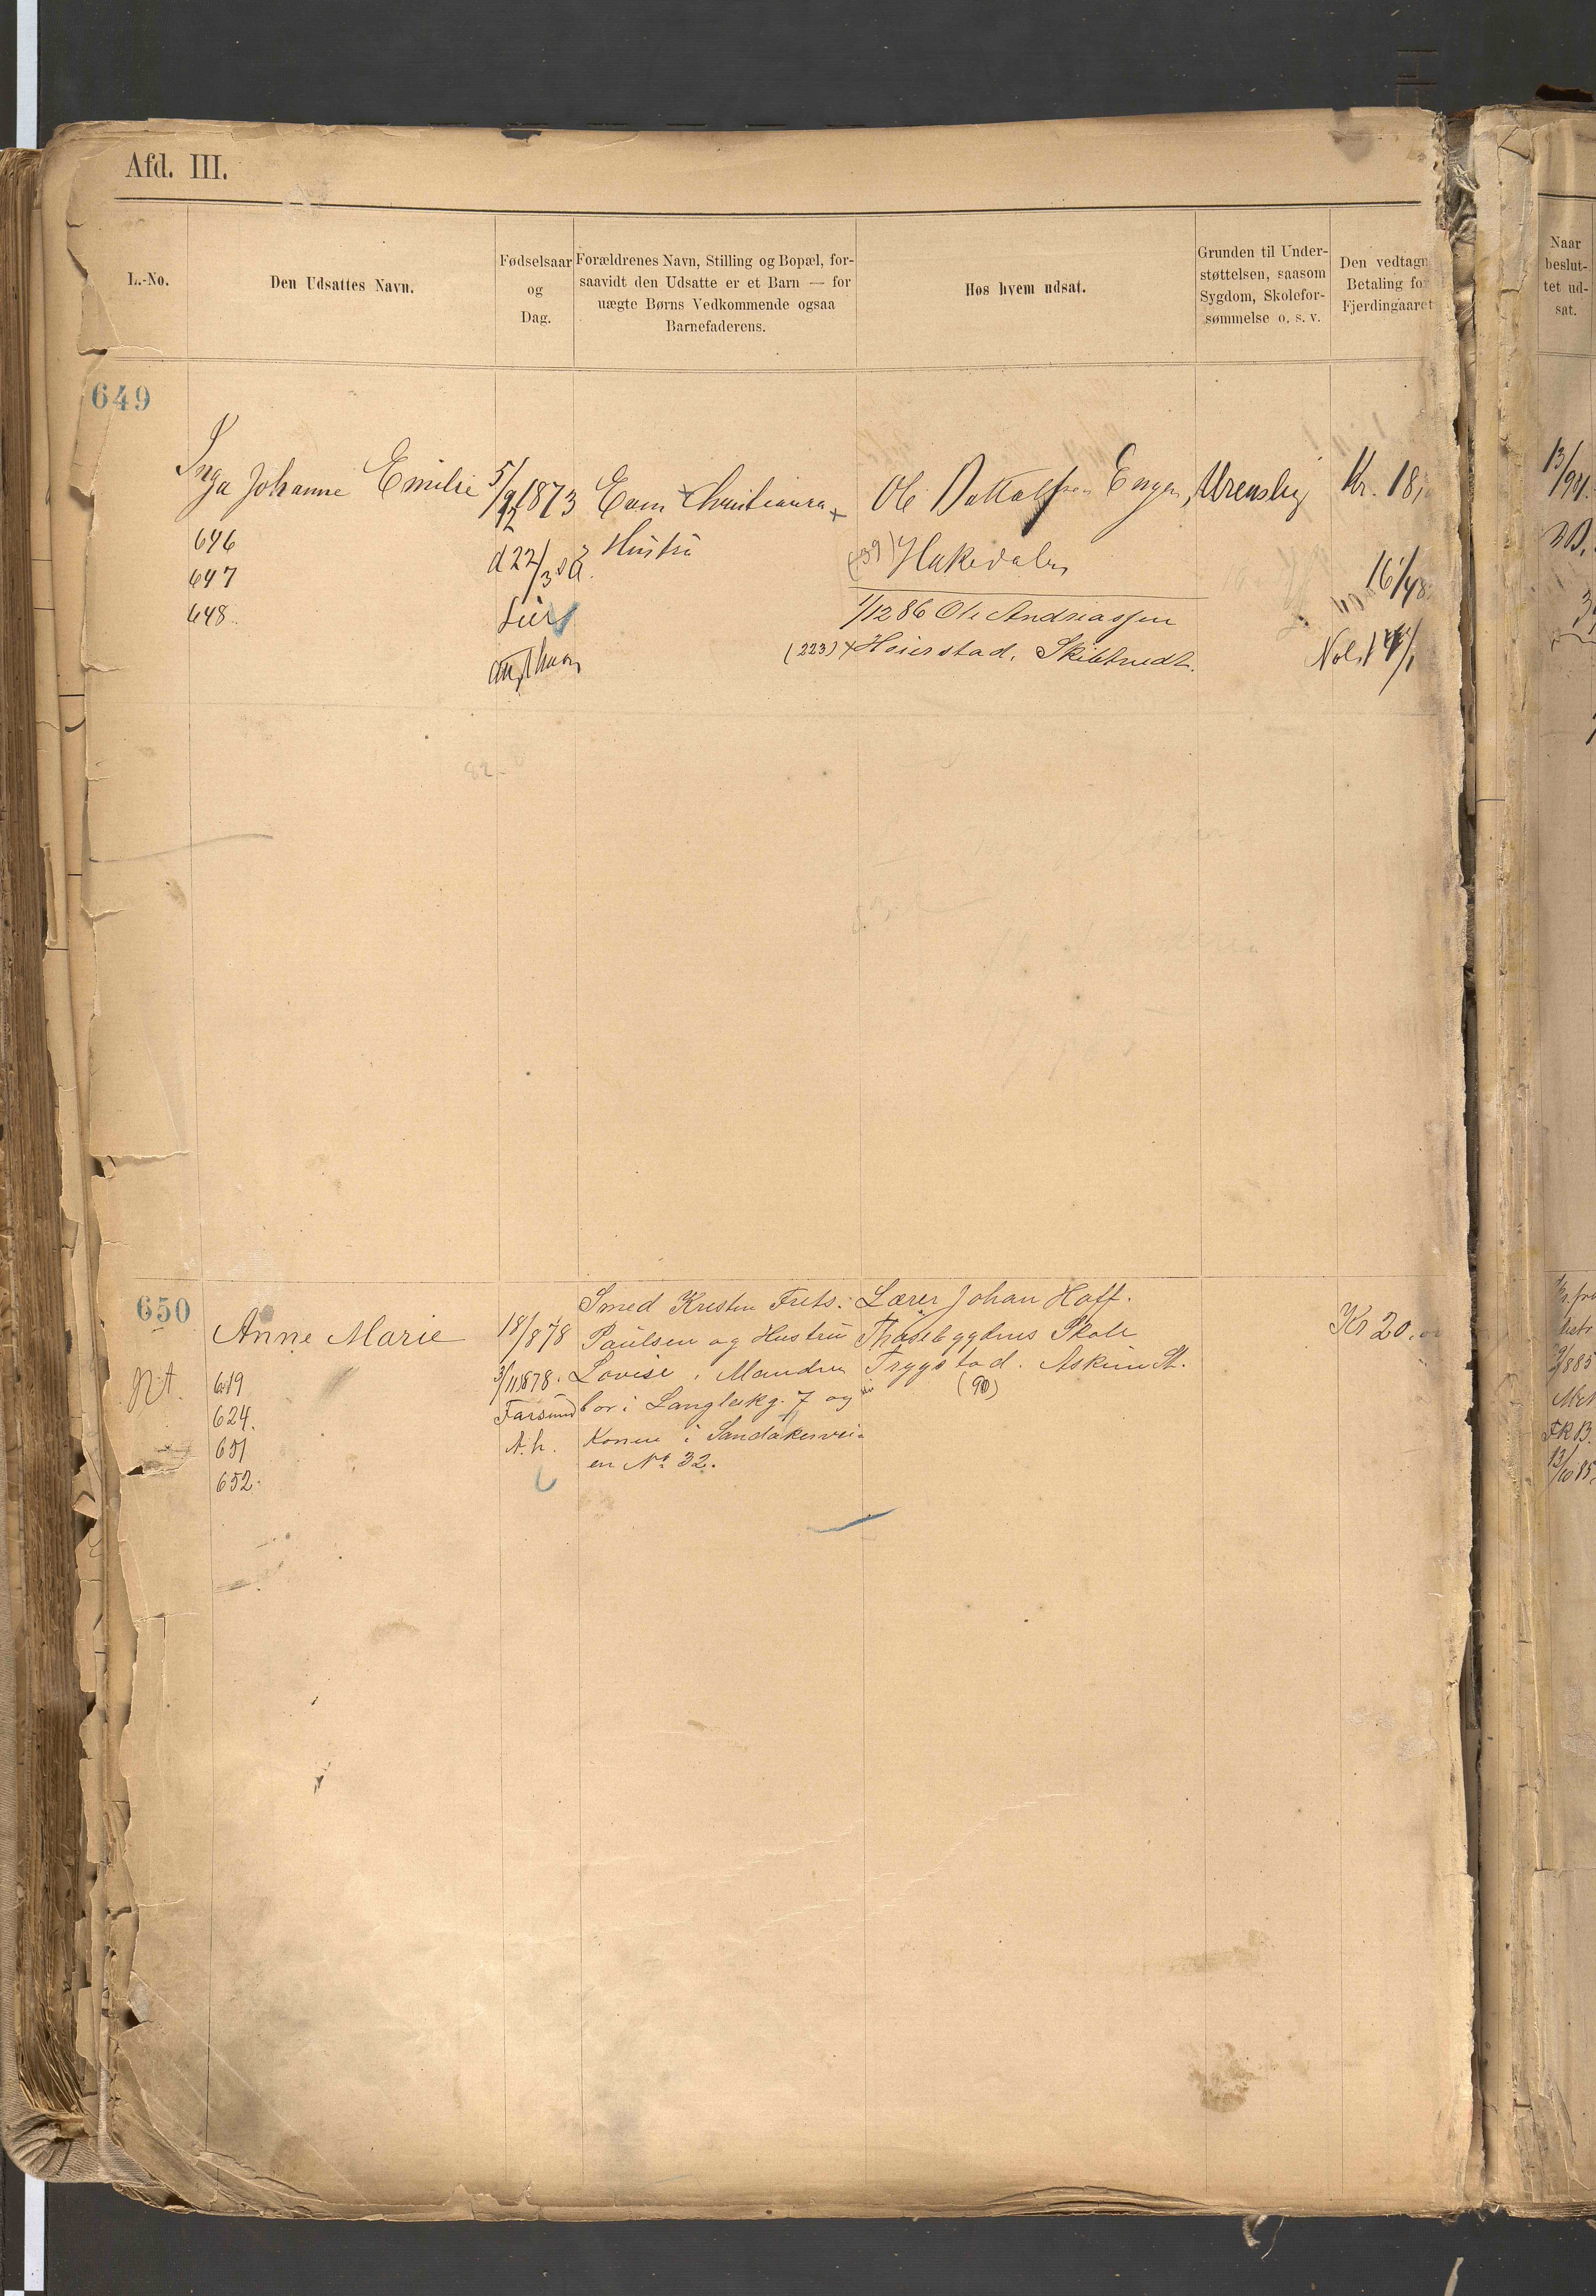 Afd. III.
L.-No.
Den Udsattes Navn.
Fødselsaar
og
Dag.
Forældrenes Navn, Stilling og Bopæl, for-
saavidt den Udsatte er et Barn — for
uægte Børns Vedkommende ogsaa
Barnefaderens.
Hos hvem udsat.
Grunden til Under-
støttelsen, saasom
Sygdom, Skolefor-
sømmelse o. s. v.
Den vedtagn
Betaling for
Fjerdingaaret
Naar
beslut-
tet ud-
sat.
649
Inga Johanne Emilie
646
647
648
5/12 1873
d 22/3
Lier
Christiansen
Hustru
Ole Engen, Urensby
(39) Hakedalen
1/12 86 Ole Andreassen
(223) + Heierstad, Skibtvedt.
Kr. 18,
16/48
13/94.
650
Anne Marie
nt.
619
624.
651
652.
18/878
3/11 1878.
Farsund
A. h.
Smed Kristen Frets.
Paulsen og Hustru
Lovise, Manden
bor i Langleikg. 7 og
Konen i Sandakervei-
en No 32.
Lærer Johan Hoff.
Skole
Trygstad. Askim St.
(90)
Kr 20.
9/885
13/10 85